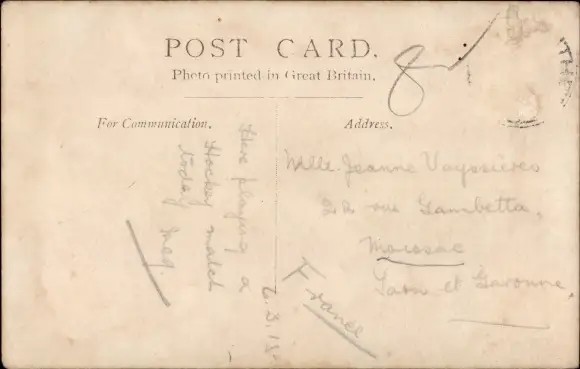 POST CARD.
Photo printed in Great Britain.
For Communication.
Address.
Here playing a
Hockey match
today
6.3.15
Mlle. Jeanne Vayssières
22 rue Gambetta,
Moissac
Tarn et Garonne
France